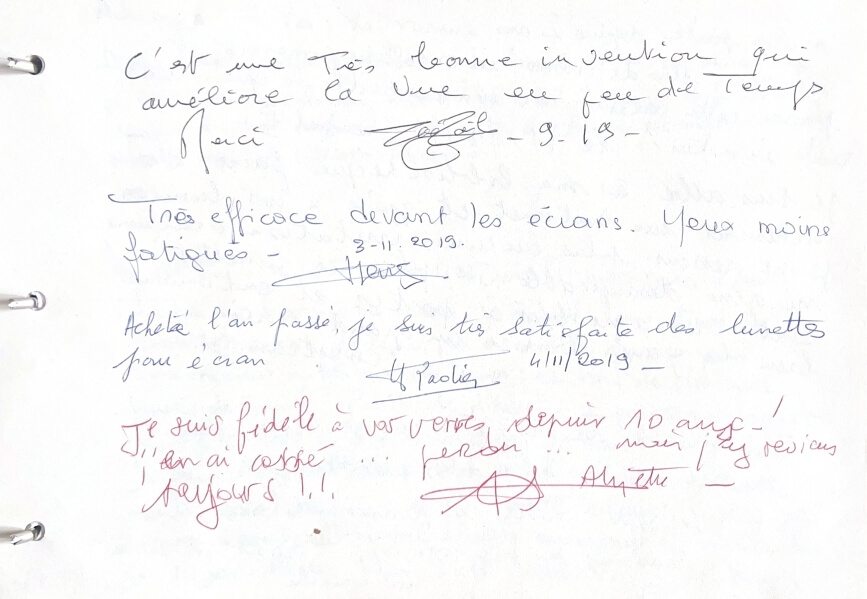 C'est une Très bonne invention qui
améliore la vue en peu de Temps
Merci - 9.19 -
Très efficace devant les écrans. Yeux moins
fatigués - 3-11.2019.
Acheté l'an passé, je suis très satisfaite des lunettes
pour écran. 4/11/2019 -
Je suis fidèle à vos verres, depuis 10 ans - !
j'en ai cassé ... perdu ... mais j'y reviens
toujours !!!